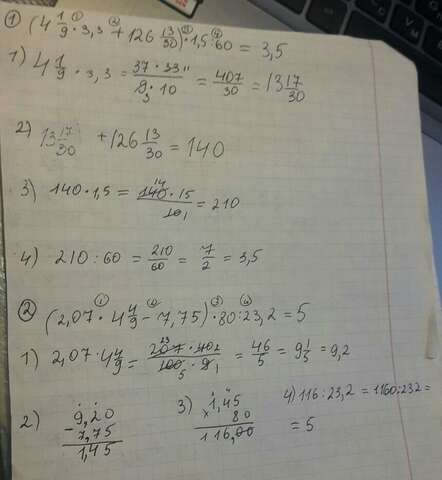 ① (4 1/9 · 3,3 + 126 13/30) · 1,5 : 60 = 3,5
1) 4 1/9 · 3,3 = 37 · 33 11 / 9 3 · 10 = 407/30 = 13 17/30
2) 13 17/30 + 126 13/30 = 140
3) 140 · 1,5 = 14 140 · 15 / 10 1 = 210
4) 210 : 60 = 210/60 = 7/2 = 3,5
② (2,07 · 4 4/9 − 7,75) · 80 : 23,2 = 5
1) 2,07 · 4 4/9 = 23 207 · 40 2 / 100 5 · 9 1 = 46/5 = 9 1/5 = 9,2
2) 9,20
− 7,75
1,45
3) 1,45
× 80
116,00
4) 116 : 23,2 = 1160 : 232 =
= 5